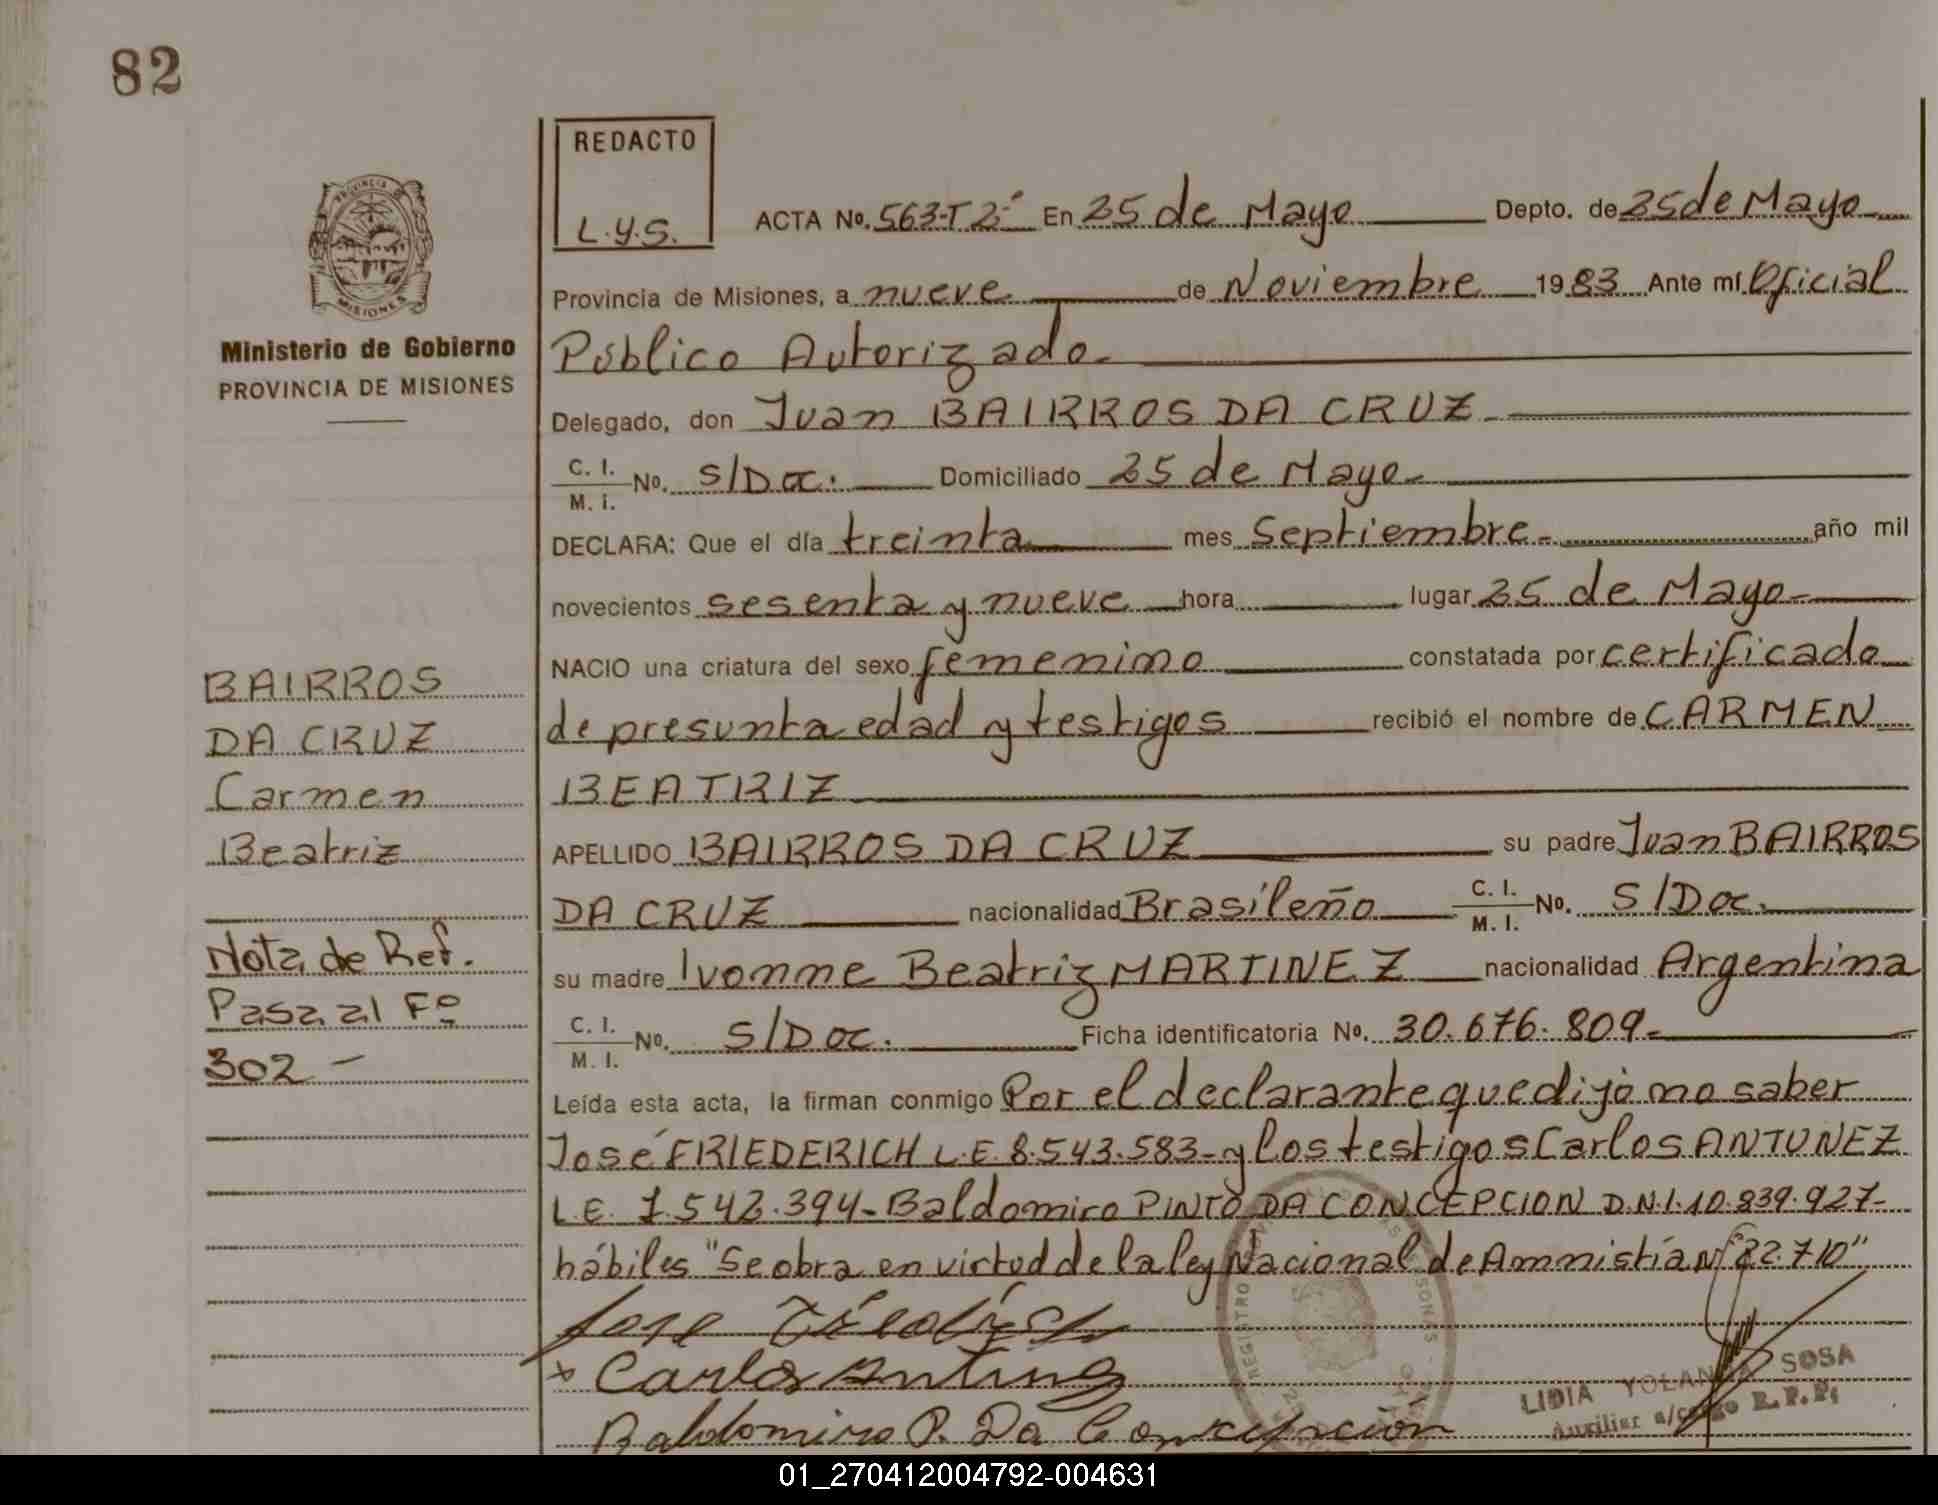 82
REDACTO
L.Y.S.
ACTA No. 563-T2º En 25 de Mayo Depto. de 25 de Mayo
Provincia de Misiones, a nueve de Noviembre 1983 Ante mí Oficial
Público Autorizado.
Delegado, don Juan BAIRROS DA CRUZ
C. I. M. I. No. S/Doc. Domiciliado 25 de Mayo
DECLARA: Que el día treinta mes Septiembre año mil
novecientos sesenta y nueve hora lugar 25 de Mayo
NACIO una criatura del sexo femenino constatada por certificado
de presunta edad y testigos recibió el nombre de CARMEN
BEATRIZ
APELLIDO BAIRROS DA CRUZ su padre Juan BAIRROS
DA CRUZ nacionalidad Brasileño C. I. M. I. No. S/Doc.
su madre Ivonne Beatriz MARTINEZ nacionalidad Argentina
C. I. M. I. No. S/Doc. Ficha identificatoria No. 30.676.809
Leída esta acta, la firman conmigo Por el declarante que dijo no saber
José FRIEDERICH L.E. 8.543.583- y los testigos Carlos ANTUNEZ
L.E. 7.542.394- Baldomiro PINTO DA CONCEPCION D.N.I. 10.839.927-
hábiles "Se obra en virtud de la ley Nacional de Ammistía Nº 22.710"
Jose
Carlos
Baldomiro P. Da Concepción
LIDIA YOLANDA SOSA
Auxiliar a/cargo R.P.P.
PROVINCIA DE MISIONES
Ministerio de Gobierno
PROVINCIA DE MISIONES
BAIRROS
DA CRUZ
Carmen
Beatriz
Nota de Ref.
Pasa al Fº
302 -
REGISTRO
01_270412004792-004631